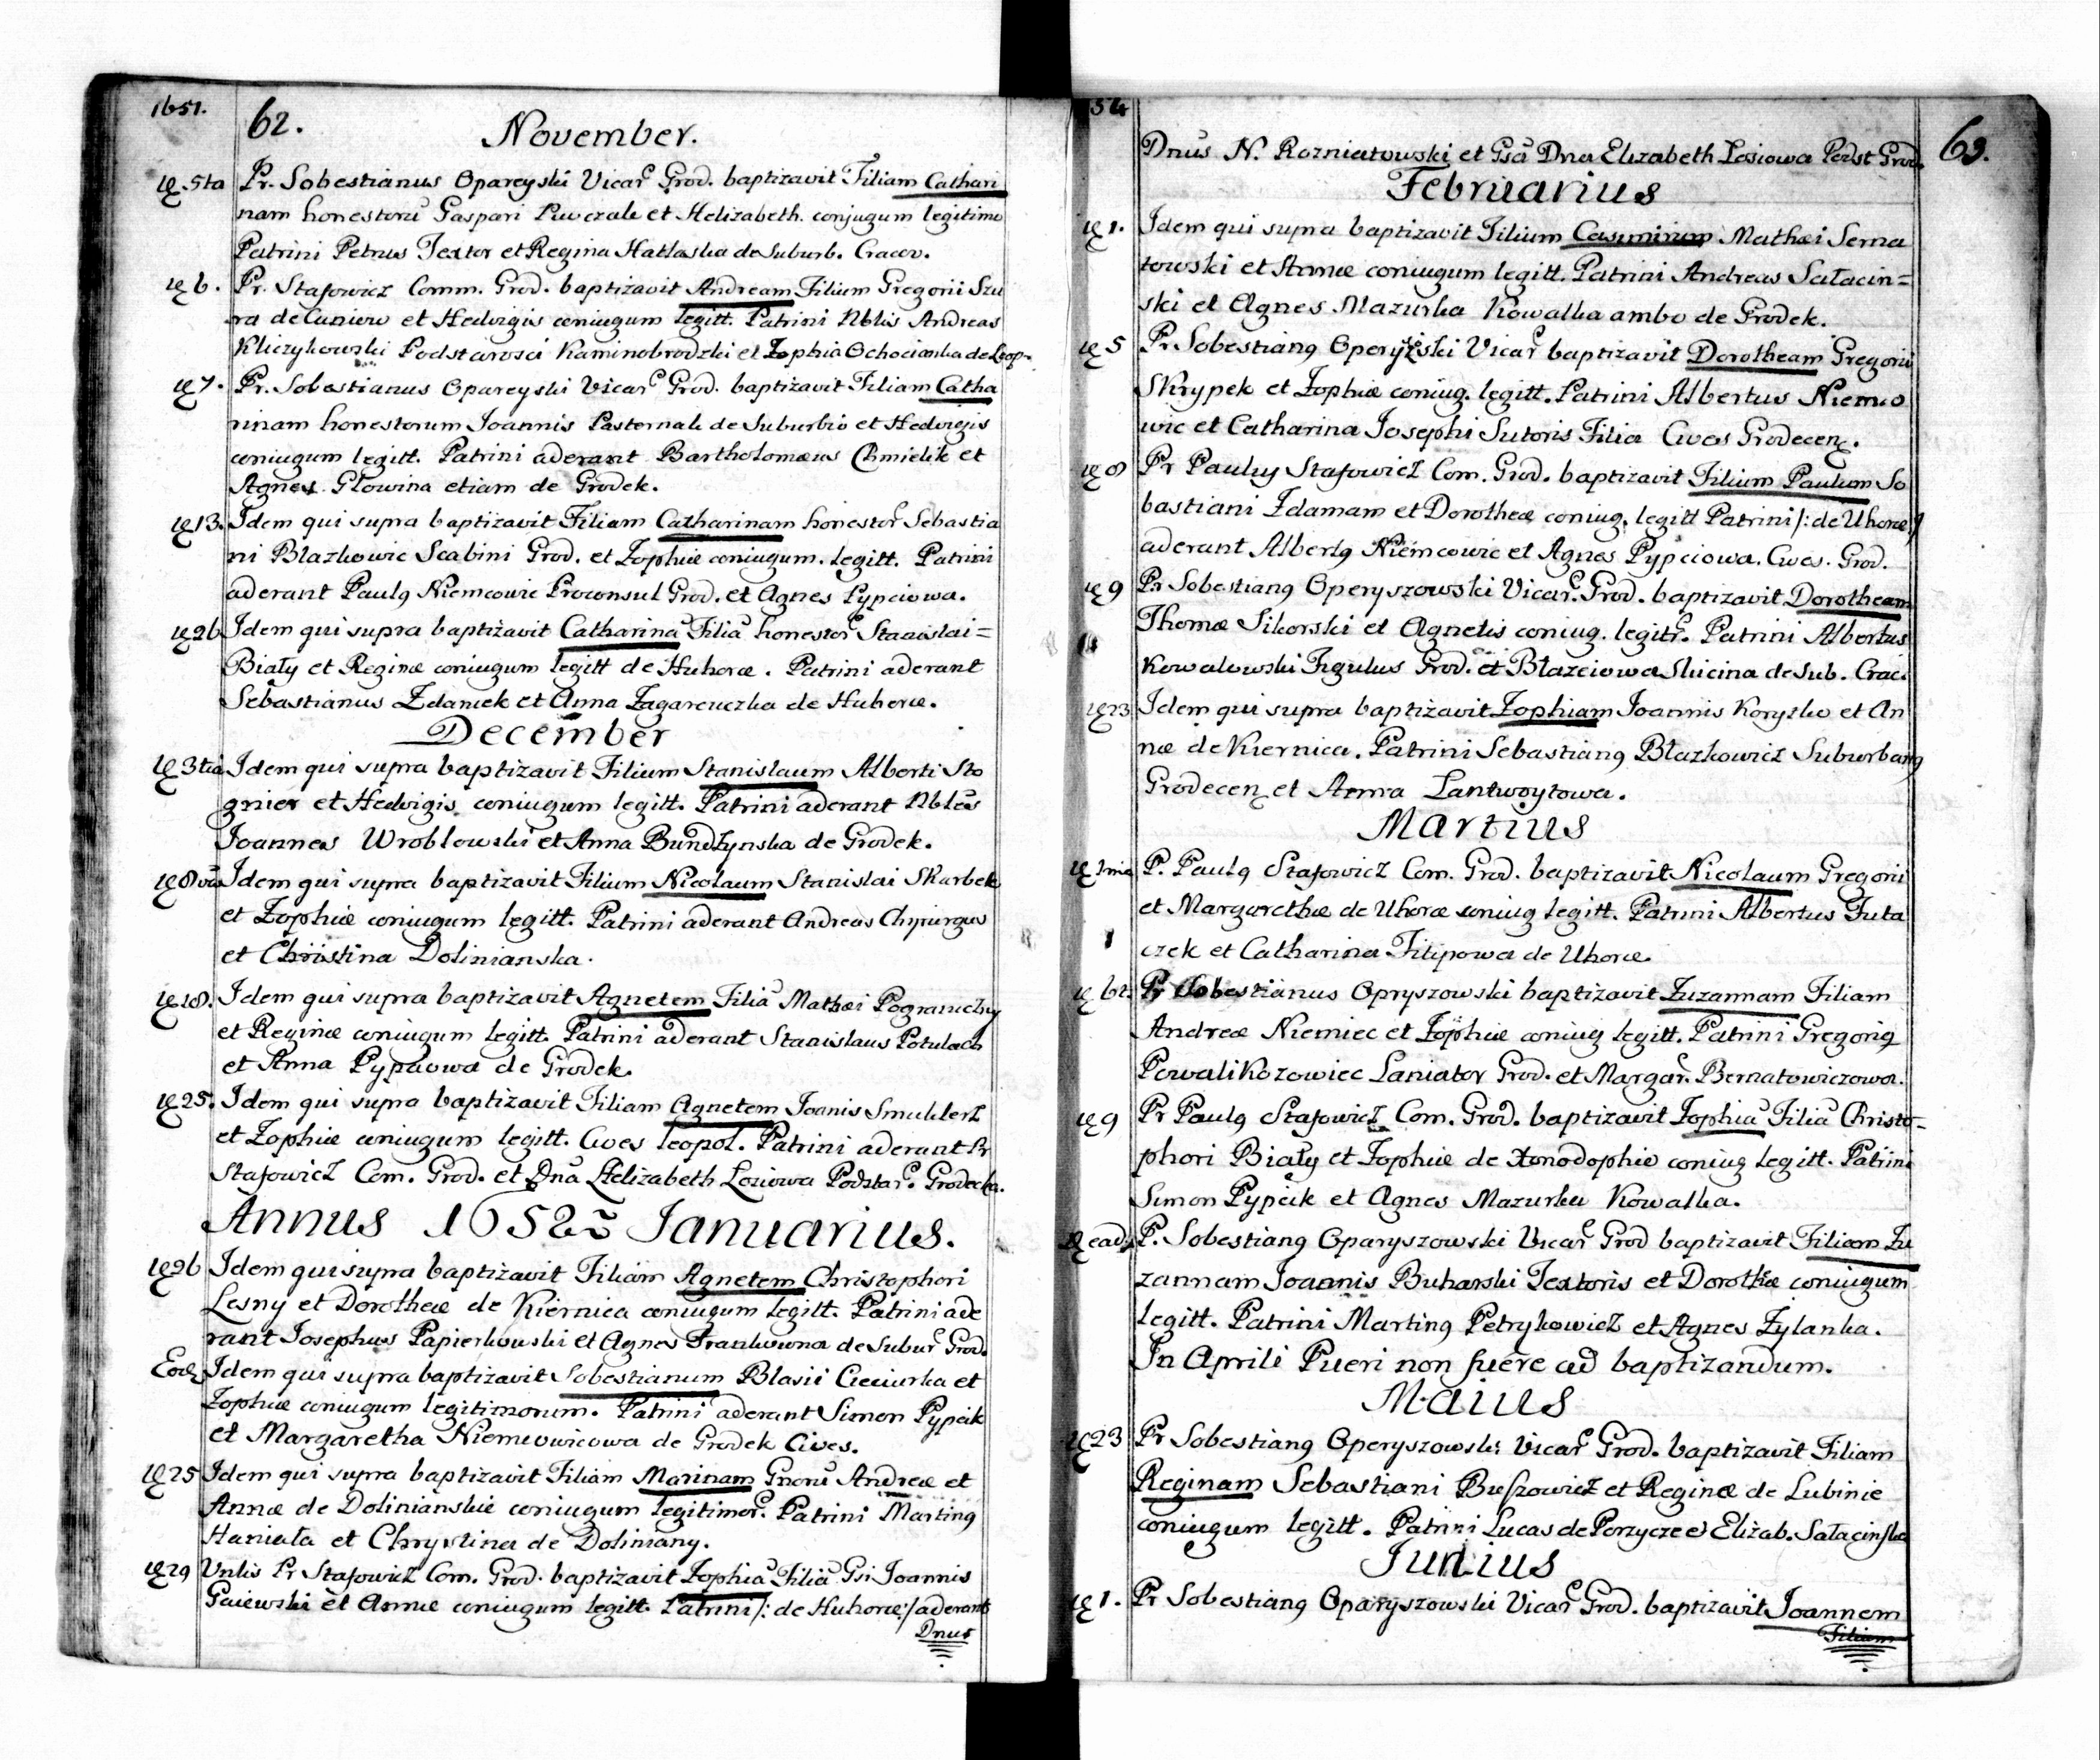 1651.
62.
November.
5ta Pr. Sobestianus Opareyski Vicar Grod. baptizavit Filiam Cathari
nam honestorũ Gaspari Puwczale et Helizabeth. conjugum legitimo
Patrini Petrus Textor et Regina Hatlaska de Suburb. Cracov.
6. Pr. Stasowicz Comm. Grod. baptizavit Andream Filium Gregorii Szu
ra de Cuniow et Hedvigis coniugum legitt. Patrini Nblis Andreas
Kliczykowski Podstarosci Kaminobrodzki et Zophia Ochocianka de Leop.
7. Pr. Sobestianus Opareyski Vicar Grod. baptizavit Filiam Catha
rinam honestorum Joannis Pasternak de Suburbio et Hedvigis
coniugum legitt. Patrini aderant Bartholomæus Chmielik et
Agnes Głowina etiam de Grodek.
13. Idem qui supra baptizavit Filiam Catharinam honestor Sebastia
ni Blazkowic Scabini Grod. et Zophiæ coniugum. legitt. Patrini
aderant Paulq Niemcowic Proconsul Grod. et Agnes Pypciowa.
26 Idem qui supra baptizavit Catharinã Filiã honestor Stanislai=
Biały et Reginæ coniugum legitt de Huhorce. Patrini aderant
Sebastianus Zdamek et Anna Zagareuczka de Huhorce.
December
3tia Idem qui supra baptizavit Filium Stanislaum Alberti Sto
gnier et Hedvigis coniugum legitt. Patrini aderant Nbles
Joannes Wroblowski et Anna Bundzynska de Grodek.
8va Idem qui supra baptizavit Filium Nicolaum Stanislai Skarbek
et Zophiæ coniugum legitt. Patrini aderant Andreas Chyrurgus
et Christina Dolinianska.
18. Idem qui supra baptizavit Agnetem Filiã Mathæi Pograniczny
et Reginæ coniugum legitt. Patrini aderant Stanislaus Potulach
et Anna Pypciowa de Grodek.
25. Idem qui supra baptizavit Filiam Agnetem Joanis Smuklerz
et Zophiæ coniugum legitt. Cives leopol. Patrini aderant Pr
Stasowicz Com. Grod. et Dna Helizabeth Losiowa Podstar. Grodecka.
Annus 1652 Januarius.
26 Idem qui supra baptizavit Filiam Agnetem Christophori
Lesny et Dorotheæ de Kiernica coniugum legitt. Patrini ade
rant Josephus Papierkowski et Agnes Frankowna de Subur Grod.
Eod Idem qui supra baptizavit Sobestianum Blasii Cieciurka et
Zophiæ coniugum legitimorum. Patrini aderant Simon Pypcik
et Margaretha Niemcowicowa de Grodek Cives.
25 Idem qui supra baptizavit Filiam Marinam Gnorũ Andreæ et
Annæ de Dolinianskie coniugum legitimor. Patrini Martinq
Haniała et Chrystina de Doliniany.
29 Vnlis Pr Stasowicz Com. Grod. baptizavit Zophiã Filiã Gsi Joannis
Gaiewski et Annæ coniugum legitt. Patrini /: de Huhorce:/ aderant
Dnus
54
63.
Dnus N. Rozniatowski et Gsa Dna Elizabeth Losiowa Podst Grod.
Februarius
1. Idem qui supra baptizavit Filium Casimirum Mathæi Serna
towski et Annæ coniugum legitt. Patrini Andreas Sałacin=
ski et Agnes Mazurka Kowalka ambo de Grodek.
5 Pr Sobestianq Operyszski Vicar baptizavit Dorotheam Gregorii
Skrypek et Zophiæ coniug. legitt. Patrini Albertus Niemco
wic et Catharina Josephi Sutoris Filia Cives Grodecen.
8 Pr Paulus Stasowicz Com. Grod. baptizavit Filium Paulum So
bastiani Zdamam et Dorotheæ coniug. legitt Patrini /: de Uhorce/
aderant Albertq Niemcowic et Agnes Pypciowa. Cives. Grod.
9 Pr Sobestianq Operyszowski Vicar. Grod. baptizavit Dorotheam
Thomæ Sikorski et Agnetis coniug. legitt. Patrini Albertus
Kowalowski Figulus Grod. et Błazeiowa Slicina de Sub. Crac.
23 Idem qui supra baptizavit Zophiam Joannis Koryzko et An
næ de Kiernica. Patrini Sebastianq Błazkowicz Suburbanq
Grodecen et Anna Lantwoytowa.
Martius
1ma P. Paulq Stasowicz Com. Grod. baptizavit Nicolaum Gregorii
et Margarethæ de Uhorce coniug legitt. Patrini Albertus Futa
czek et Catharina Filipowa de Uhorce.
6t. Pr Sobestianus Opryszowski baptizavit Zuzannam Filiam
Andreæ Niemiec et Zophiæ coniug legitt. Patrini Gregoriq
Powalikozowiec Laniator Grod. et Margar. Bernatowiczowa.
9 Pr Paulq Stasowicz Com. Grod. baptizavit Zophiã Filiã Christo-
phori Biały et Zophiæ de Xonodophie coniug legitt. Patrini
Simon Pypcik et Agnes Mazurka Kowalka.
ead P. Sobestianq Oparyszowski Vicar Grod baptizavit Filiam Zu
zannam Joannis Bukarski Textoris et Dorothæ coniugum
legitt. Patrini Martinq Petrykowicz et Agnes Zylanka.
In Aprili Pueri non fuere ad baptizandum.
Maius
23 Pr Sobestianq Operyszowski Vicar Grod. baptizavit Filiam
Reginam Sebastiani Buszowicz et Reginæ de Lubinie
coniugum legitt. Patrini Lucas de Porzycze et Elizab. Sałacinska
Junius
1. Pr Sobestianq Oparyszowski Vicar Grod. baptizavit Joannem
Filium